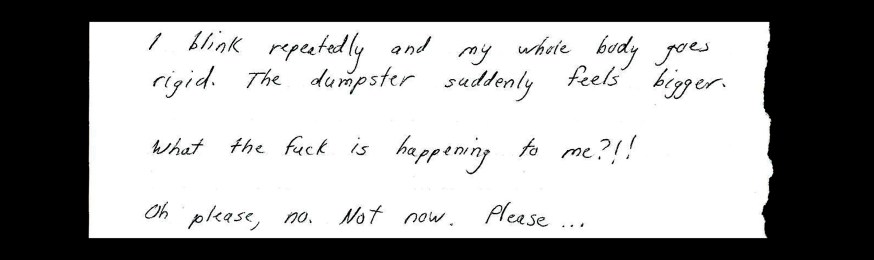 I blink repeatedly and my whole body goes
rigid. The dumpster suddenly feels bigger.
What the fuck is happening to me?!!
Oh please, no. Not now. Please...